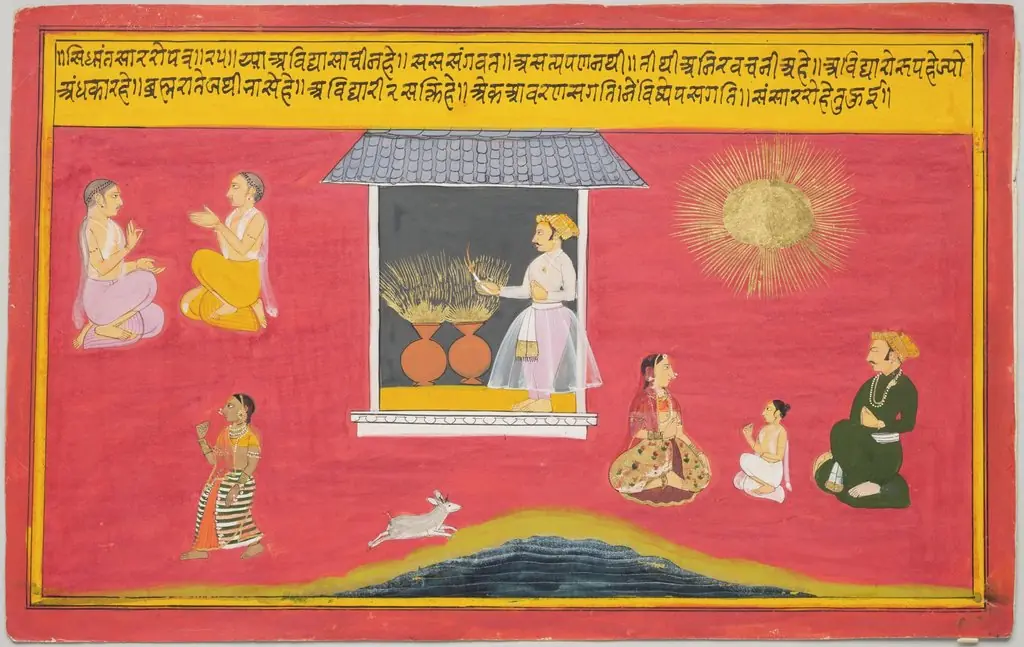 ॥सिध्धंतसाररोपत्र॥२५॥ य्या अविद्यासाचीनहे॥ सससंगवत॥ असत्यपणनथी॥ तीथी अनिरवचनी अहे॥ अविद्यारोरूपहेज्यो
अंधकारहे॥ ब्रह्मरातेजथीनासेहे॥ अविद्यारी २ सक्तिहे॥ अेक आवरणसगति॥ नें विष्येपसगति॥ संसाररोहेतु